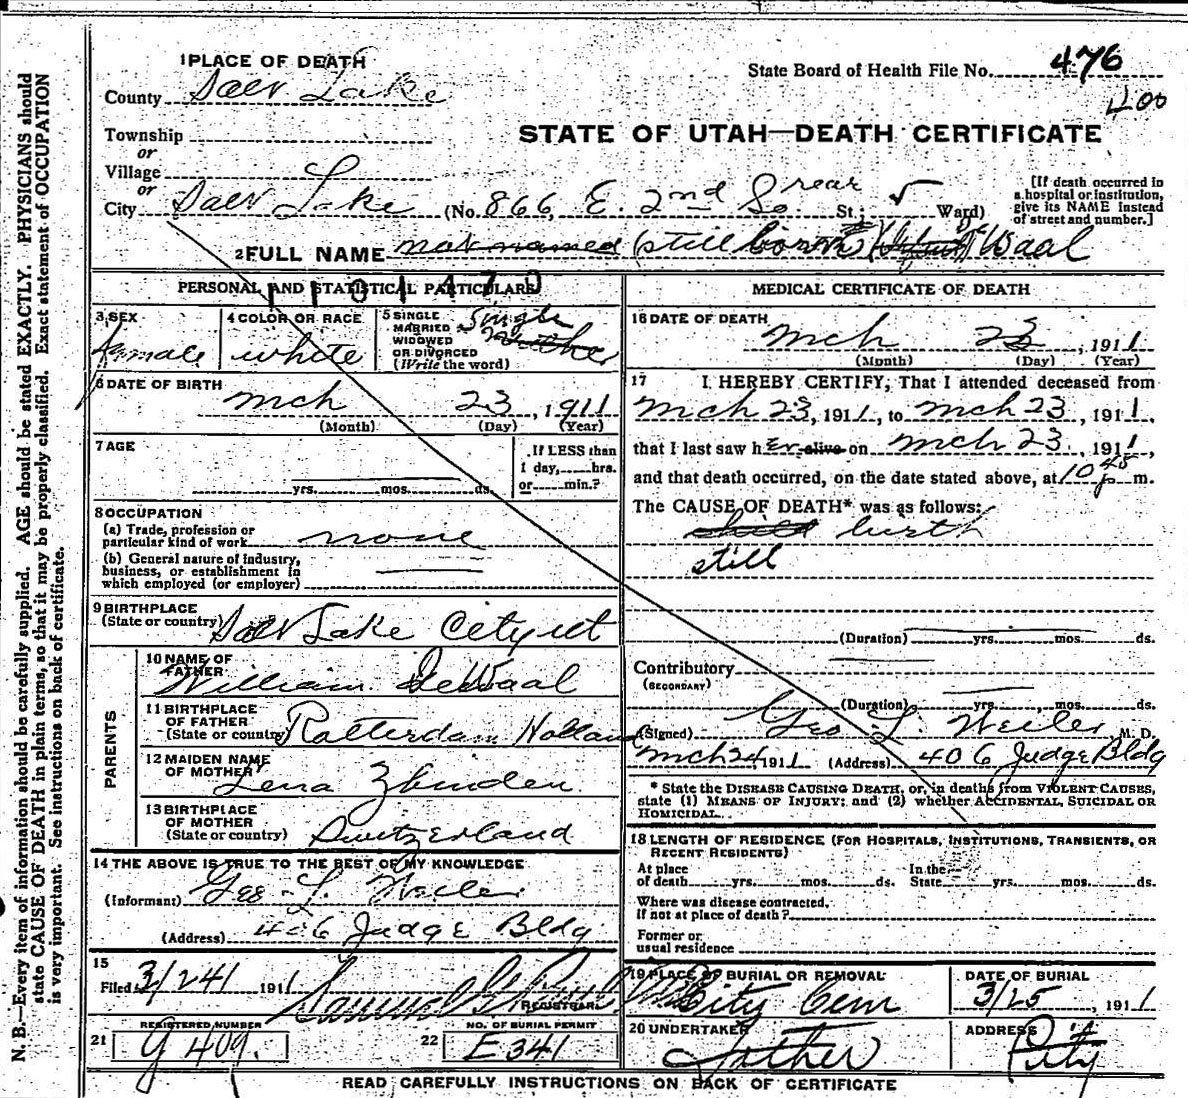 1 PLACE OF DEATH
State Board of Health File No. 476
County Salt Lake
400
Township
STATE OF UTAH—DEATH CERTIFICATE
or
Village
or
City Salt Lake (No. 866 E. 2nd So rear St.; Ward)
[If death occurred in a hospital or institution, give its NAME instead of street and number.]
2 FULL NAME not named (still born) Waal
PERSONAL AND STATISTICAL PARTICULARS
3 SEX
female
4 COLOR OR RACE
white
5 SINGLE
MARRIED
WIDOWED
OR DIVORCED
(Write the word)
Single
6 DATE OF BIRTH
mch 23, 1911
(Month) (Day) (Year)
7 AGE
If LESS than
1 day, hrs.
or min.?
yrs. mos. ds.
8 OCCUPATION
(a) Trade, profession or
particular kind of work none
(b) General nature of industry,
business, or establishment in
which employed (or employer)
9 BIRTHPLACE
(State or country) Salt Lake City ut
PARENTS
10 NAME OF
FATHER
William DeWaal
11 BIRTHPLACE
OF FATHER
(State or country) Rotterdam Holland
12 MAIDEN NAME
OF MOTHER
Lena Zbinden
13 BIRTHPLACE
OF MOTHER
(State or country) Switzerland
14 THE ABOVE IS TRUE TO THE BEST OF MY KNOWLEDGE
(Informant) Geo. L. Weiler
(Address) 406 Judge Bldg
15
Filed 3/24/ 1911
REGISTRAR
21
REGISTERED NUMBER
G 409.
22
NO. OF BURIAL PERMIT
E 341
MEDICAL CERTIFICATE OF DEATH
16 DATE OF DEATH
mch 23, 1911
(Month) (Day) (Year)
17 I HEREBY CERTIFY, That I attended deceased from
mch 23, 1911, to mch 23, 1911,
that I last saw her alive on mch 23, 1911,
and that death occurred, on the date stated above, at 10 45 p m.
The CAUSE OF DEATH* was as follows:
child birth
still
(Duration) yrs. mos. ds.
Contributory
(SECONDARY)
(Duration) yrs. mos. ds.
(Signed) Geo L. Weiler M. D.
mch 24, 1911 (Address) 406 Judge Bldg
* State the DISEASE CAUSING DEATH, or, in deaths from VIOLENT CAUSES,
state (1) MEANS OF INJURY; and (2) whether ACCIDENTAL, SUICIDAL OR
HOMICIDAL.
18 LENGTH OF RESIDENCE (FOR HOSPITALS, INSTITUTIONS, TRANSIENTS, OR
RECENT RESIDENTS)
At place
of death yrs. mos. ds.
In the
State yrs. mos. ds.
Where was disease contracted,
if not at place of death?
Former or
usual residence
19 PLACE OF BURIAL OR REMOVAL
City Cem
DATE OF BURIAL
3/25, 1911
20 UNDERTAKER
father
ADDRESS
City
READ CAREFULLY INSTRUCTIONS ON BACK OF CERTIFICATE
N. B.—Every item of information should be carefully supplied. AGE should be stated EXACTLY. PHYSICIANS should
state CAUSE OF DEATH in plain terms, so that it may be properly classified. Exact statement of OCCUPATION
is very important. See instructions on back of certificate.